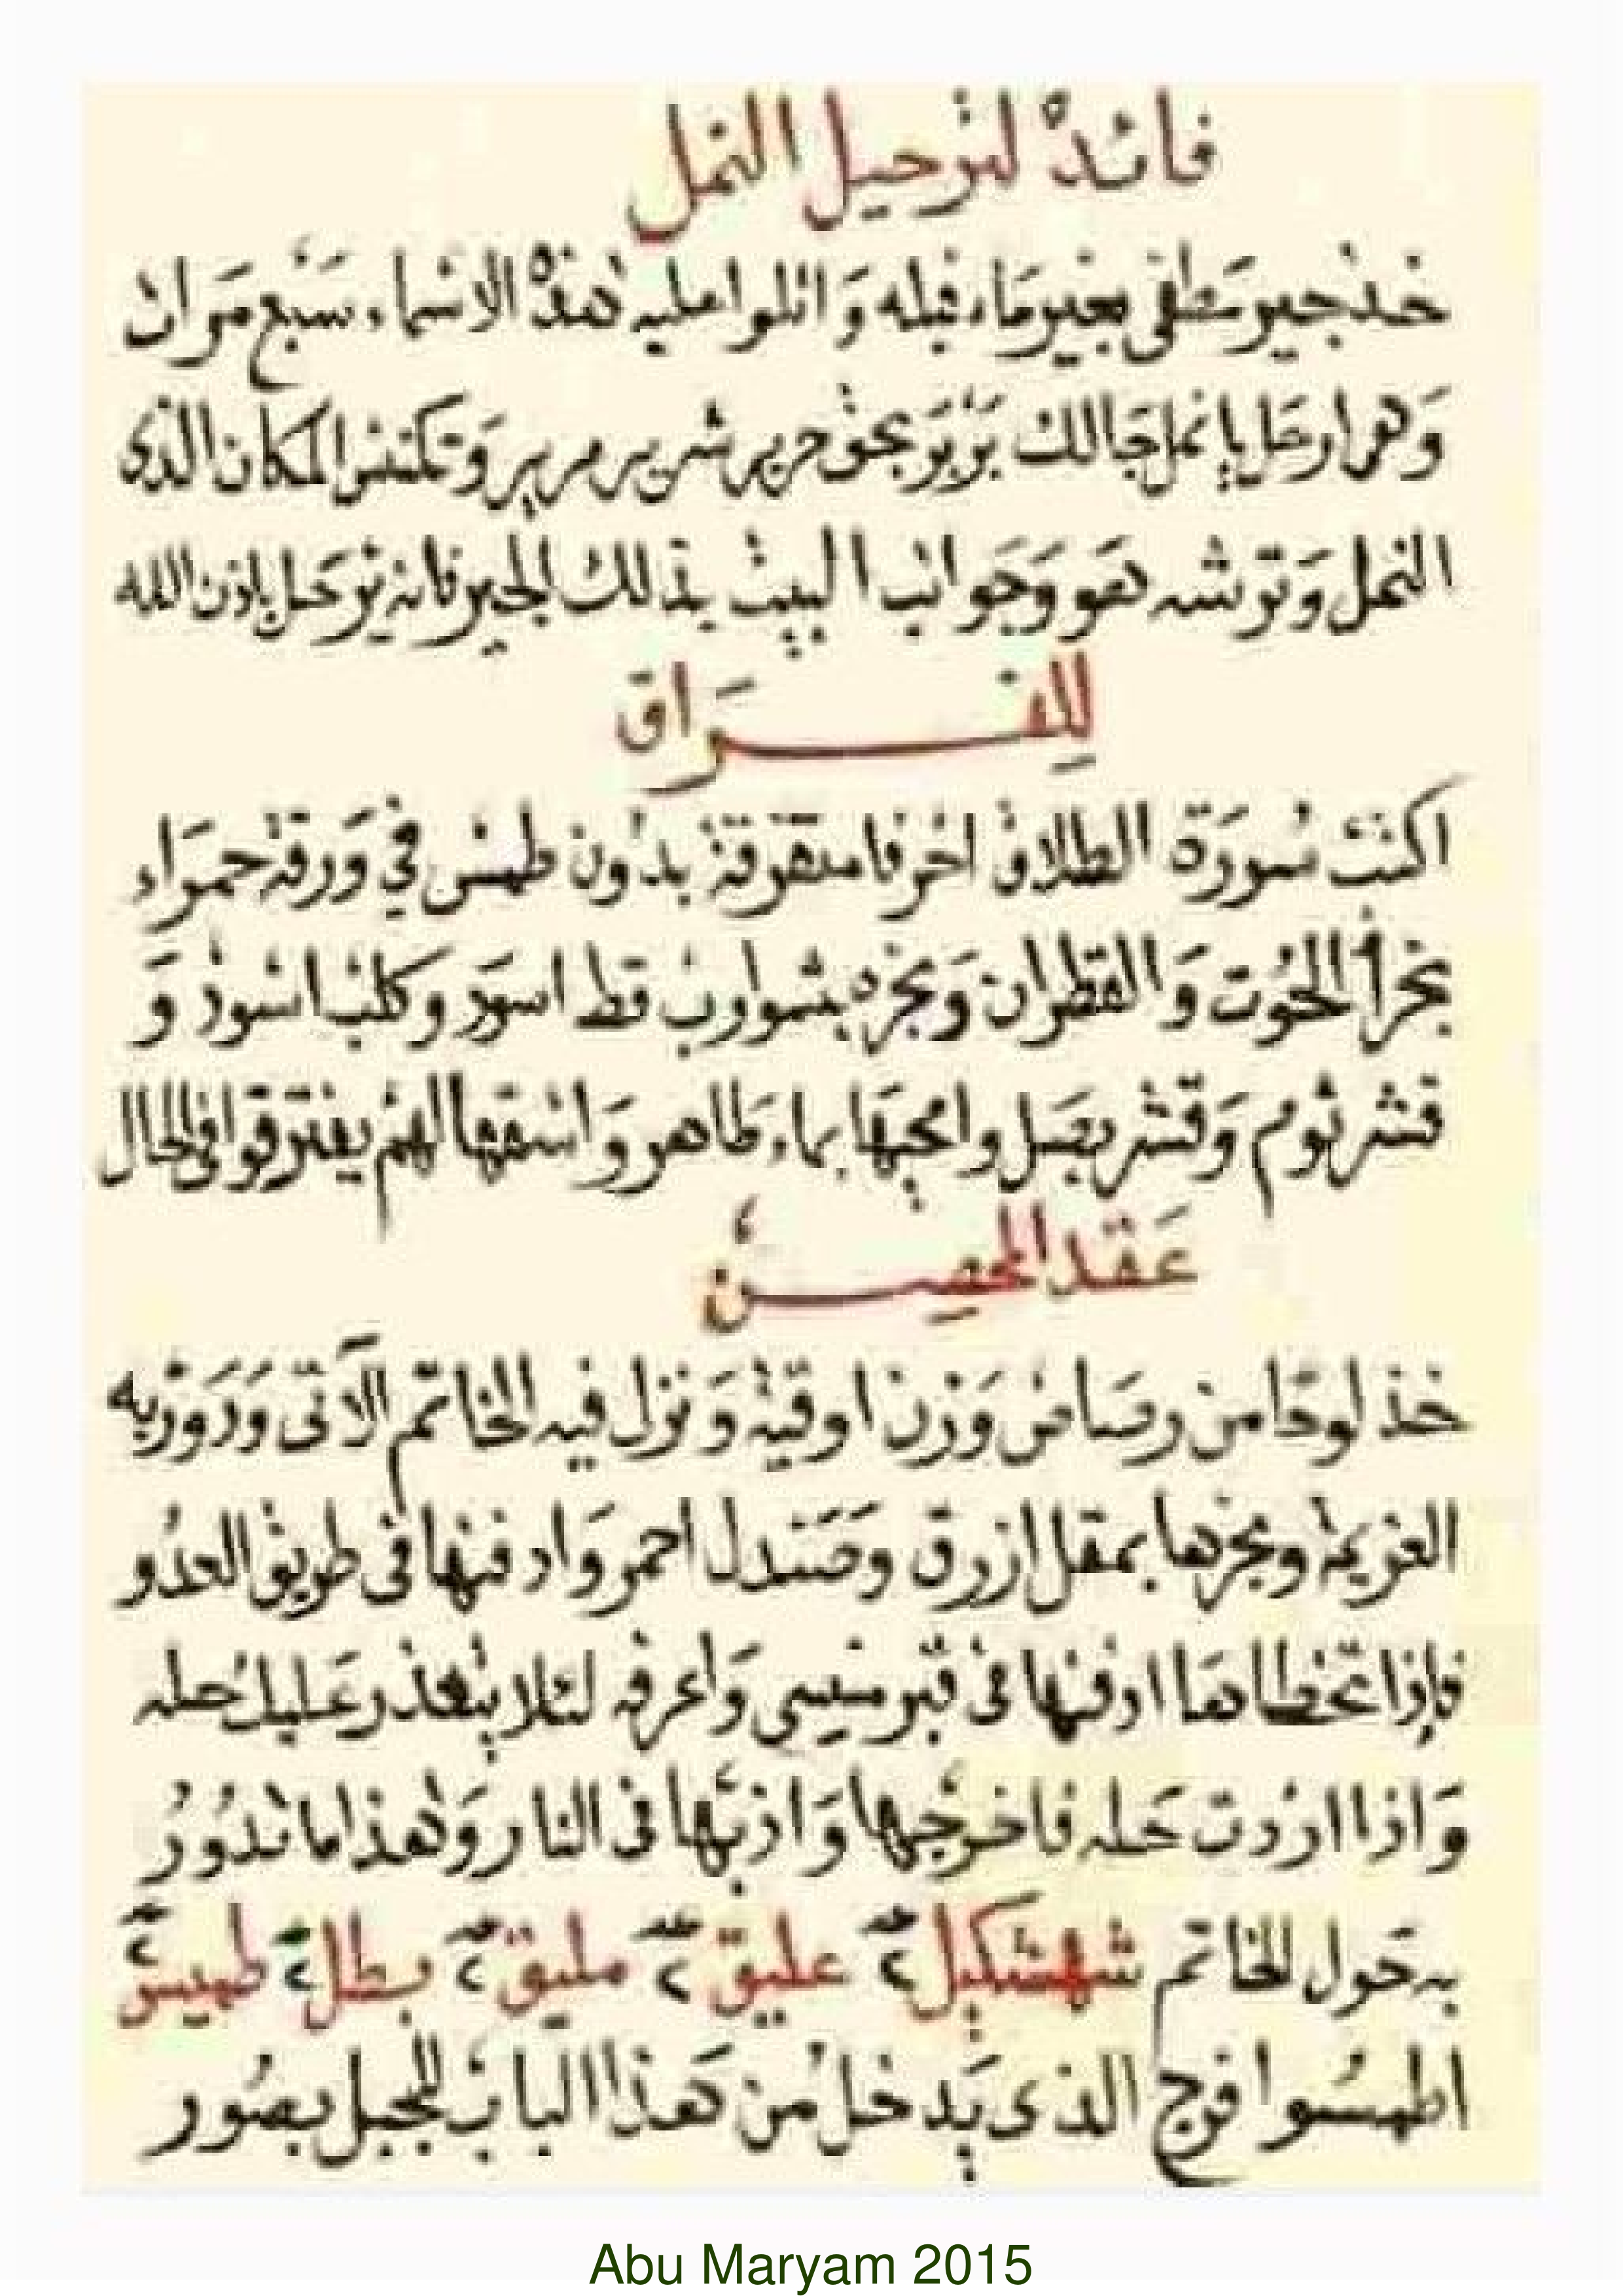 فائدة لترحيل النمل
خذ جير مطفى بغير ماء قبله واتلوا عليه هذه الاسماء سبع مرات
وهى ارحل يا نمل جالك بربر بحق حرير شرير مرير وتكنس المكان الذى
النمل وترشه هو وجوانب البيت بذلك الجير فانه يرحل باذن الله
للفراق
اكتب سورة الطلاق احرفا متفرقة بدون طمس في ورقة حمراء
بخرأ الحوت والقطران وبخره بشوارب قط اسود وكلب اسود و
قشر ثوم وقشر بصل وامحيها بماء طاهر واسقها لهم يفترقوا فى الحال
عقد الحصن
خذ لوحا من رصاص وزن اوقية ونزل فيه الخاتم الآتى ودور به
العزيمة وبخرها بمقل ازرق وصندل احمر وادفنها فى طريق العدو
فإذا تخطاها ادفنها فى قبر منسى واعرفه لئلا يتعذر عليك حله
واذا اردت حله فاخرجها واذبها فى النار وهذا ما تدور
به حول الخاتم شهشكيل ٢ عليق ٢ مليق ٢ بطل ٢ طهيش ٢
اطمسوا فرج الذى يدخل من هذا الباب بجبل بصور
Abu Maryam 2015